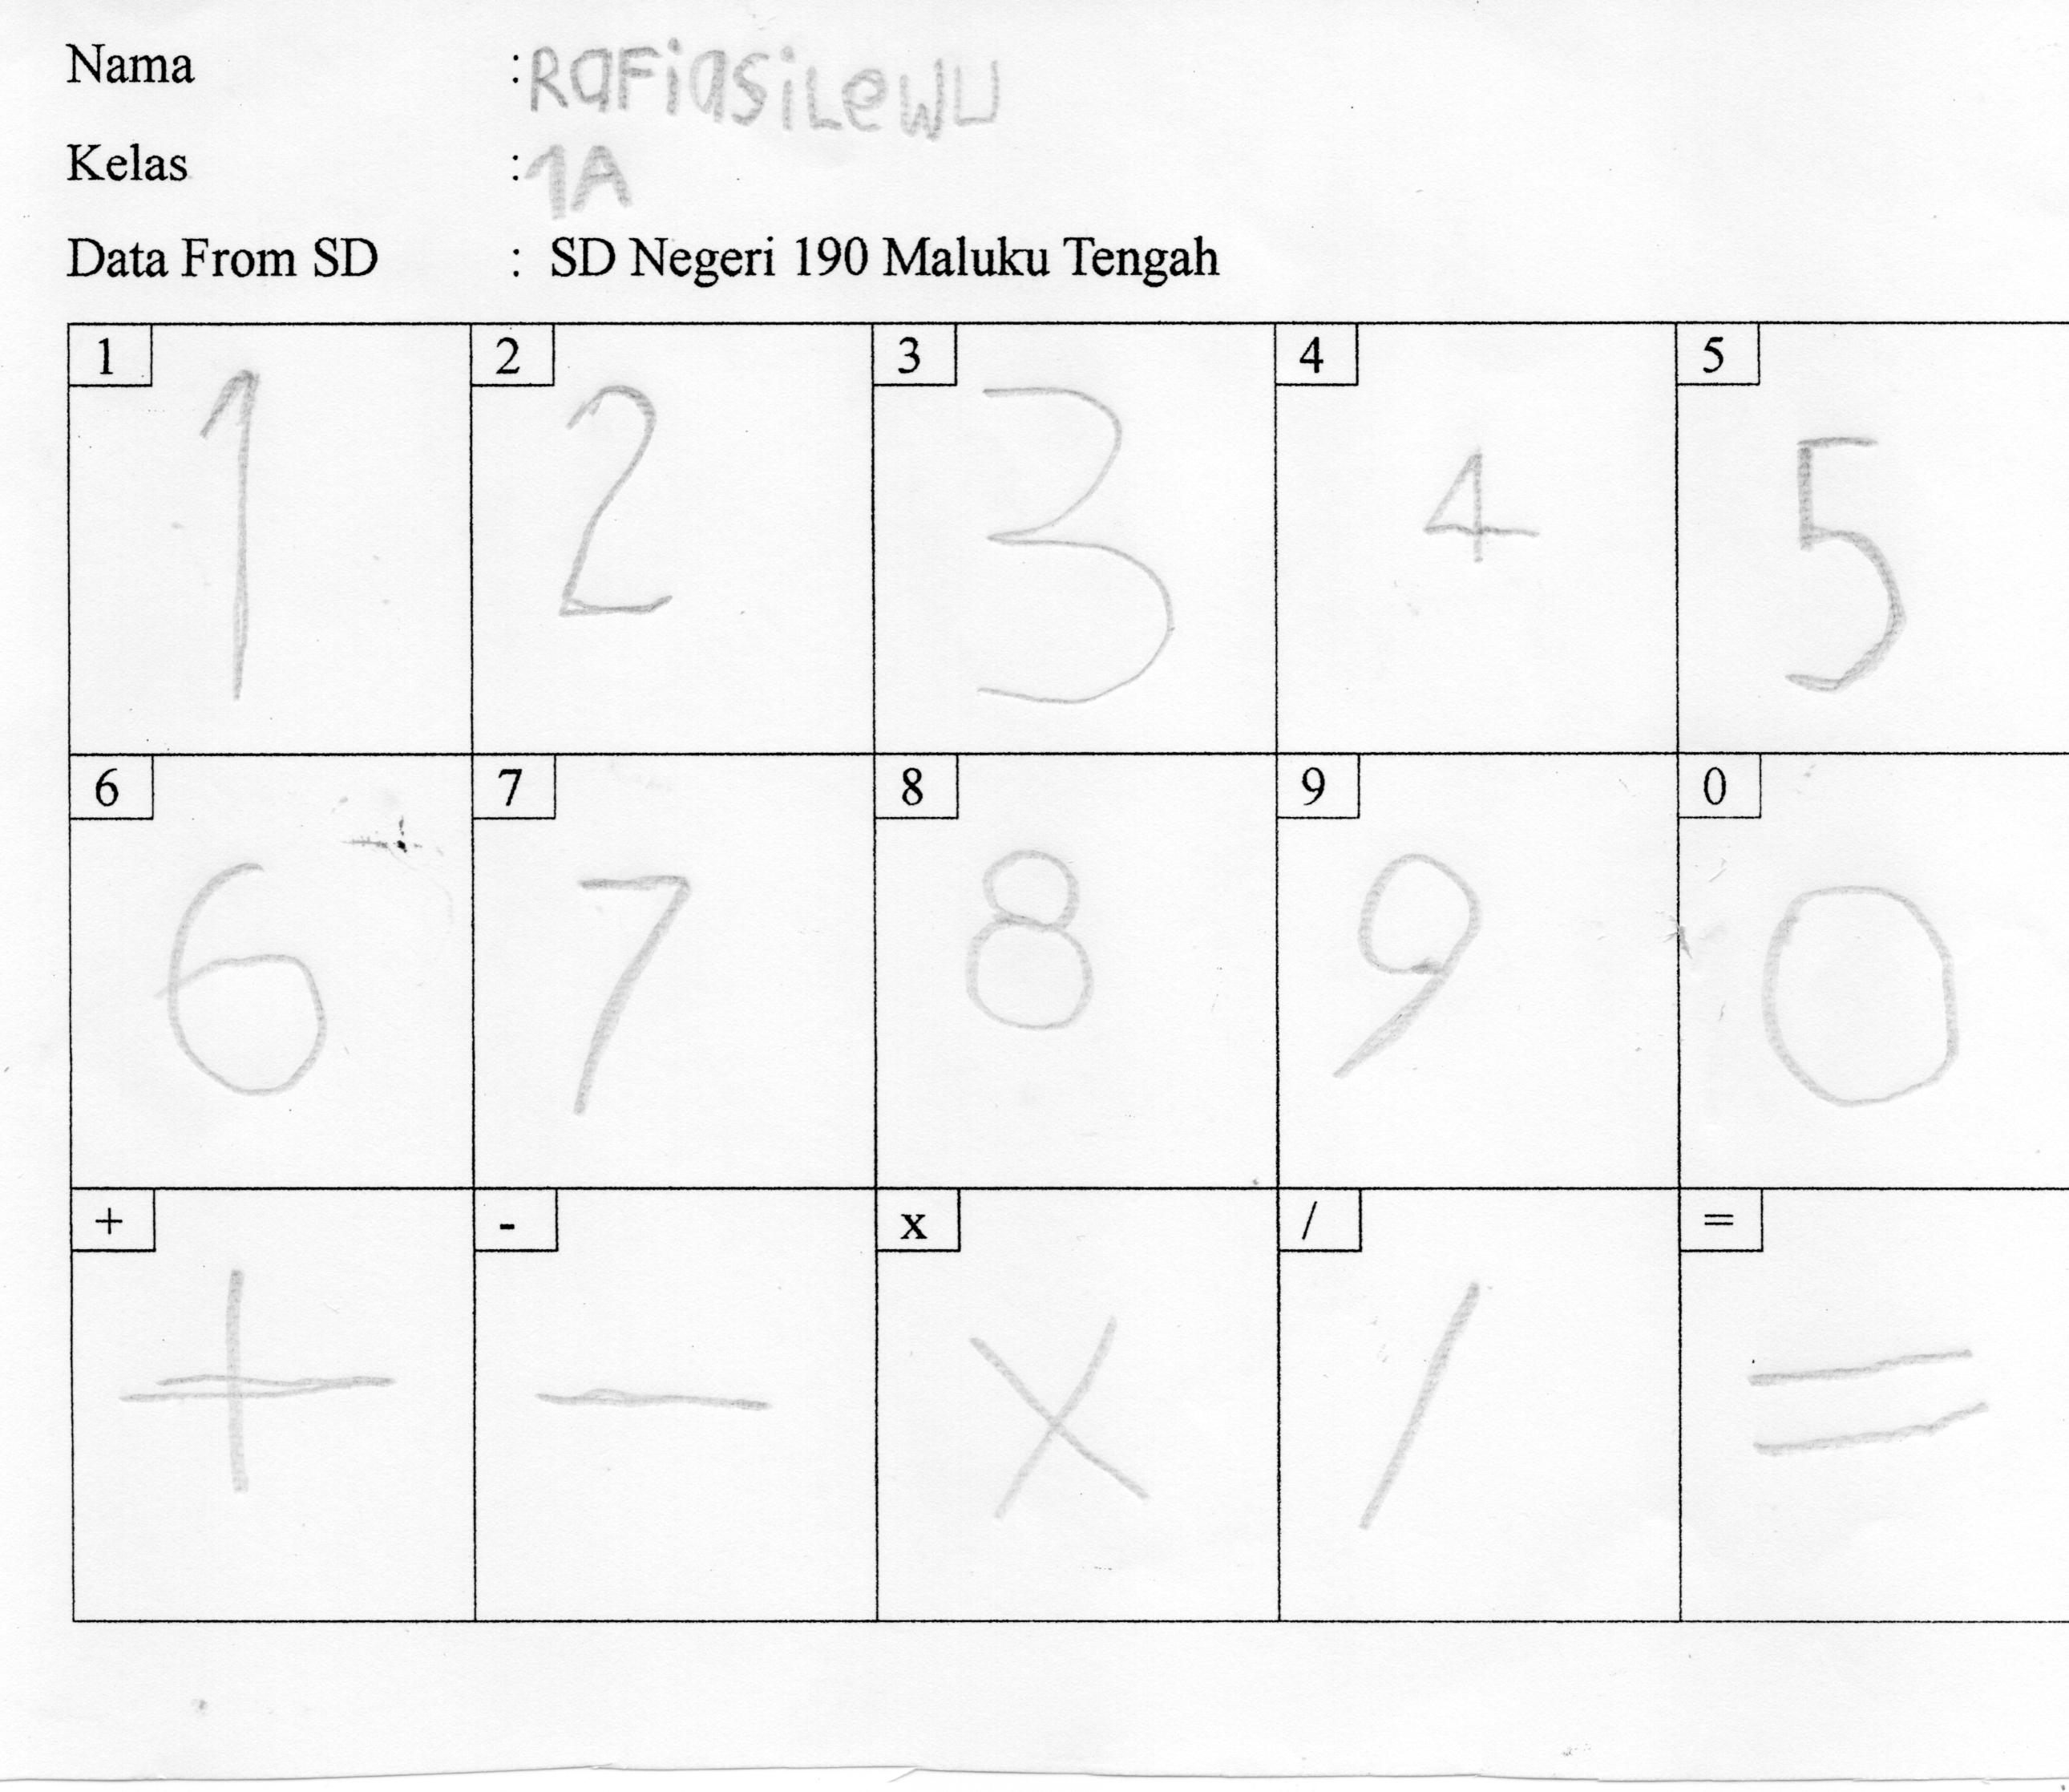 Nama : RaFiasiLeWU
Kelas : 1A
Data From SD : SD Negeri 190 Maluku Tengah
1 2 3 4 5
1 2 3 4 5
6 7 8 9 0
6 7 8 9 0
+ - x / =
+ - x / =